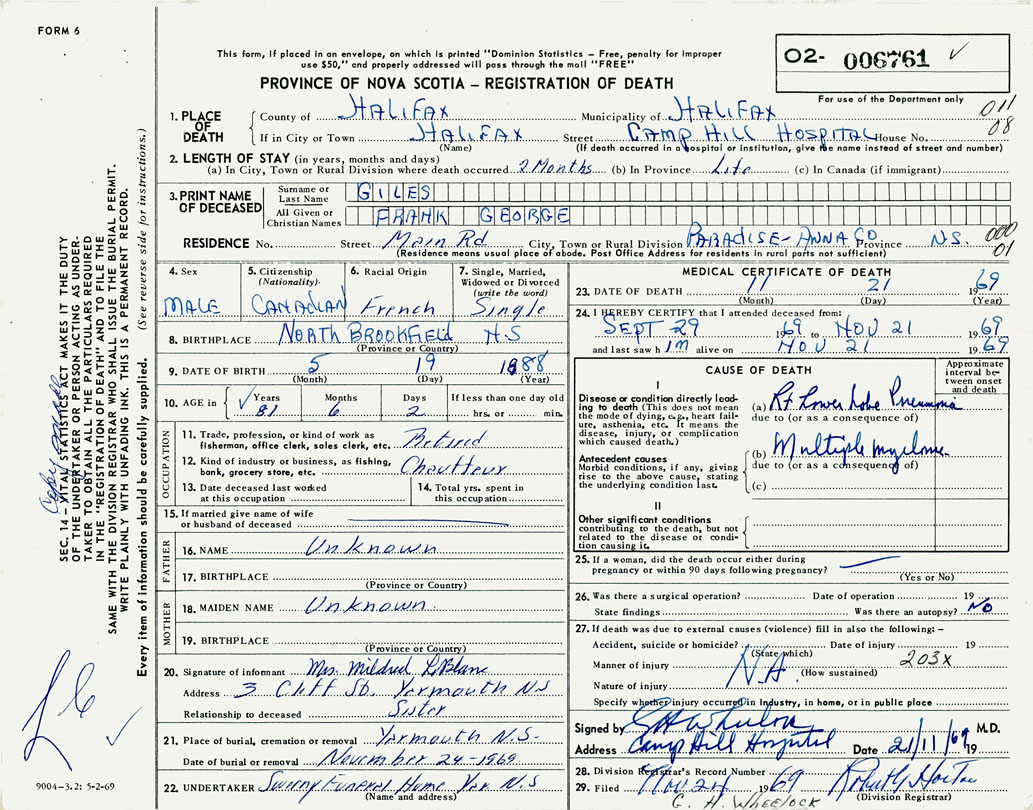 FORM 6
This form, if placed in an envelope, on which is printed "Dominion Statistics – Free, penalty for improper
use $50," and properly addressed will pass through the mail "FREE"
PROVINCE OF NOVA SCOTIA – REGISTRATION OF DEATH
02- 006761 ✓
For use of the Department only
011
08
1. PLACE OF DEATH
County of HALIFAX Municipality of HALIFAX
If in City or Town HALIFAX Street CAMP HILL HOSPITAL House No.
(Name) (If death occurred in a hospital or institution, give the name instead of street and number)
2. LENGTH OF STAY (in years, months and days)
(a) In City, Town or Rural Division where death occurred 2 Months (b) In Province Life (c) In Canada (if immigrant)
3. PRINT NAME OF DECEASED
Surname or Last Name GILES
All Given or Christian Names FRANK GEORGE
RESIDENCE No. Street Main Rd City, Town or Rural Division PARADISE - ANNA CO Province N.S.
000
01
(Residence means usual place of abode. Post Office Address for residents in rural parts not sufficient)
4. Sex MALE
5. Citizenship (Nationality) CANADIAN
6. Racial Origin French
7. Single, Married, Widowed or Divorced (write the word) Single
8. BIRTHPLACE NORTH BROOKFIELD N.S
(Province or Country)
9. DATE OF BIRTH 5 19 1888
(Month) (Day) (Year)
10. AGE in ✓ Years 81 Months 6 Days 2 If less than one day old hrs. or min.
OCCUPATION
11. Trade, profession, or kind of work as
fisherman, office clerk, sales clerk, etc. Retired
12. Kind of industry or business, as fishing,
bank, grocery store, etc. Chauffeur
13. Date deceased last worked
at this occupation
14. Total yrs. spent in
this occupation
15. If married give name of wife
or husband of deceased
FATHER
16. NAME Unknown
17. BIRTHPLACE
(Province or Country)
MOTHER
18. MAIDEN NAME Unknown
19. BIRTHPLACE
(Province or Country)
20. Signature of informant Mrs. Mildred LeBlanc
Address 3 Cliff St. Yarmouth N.S
Relationship to deceased Sister
21. Place of burial, cremation or removal Yarmouth N.S.
Date of burial or removal November 24 - 1969
22. UNDERTAKER Sweeny Funeral Home Yar. N.S
(Name and address)
MEDICAL CERTIFICATE OF DEATH
23. DATE OF DEATH 11 21 1969
(Month) (Day) (Year)
24. I HEREBY CERTIFY that I attended deceased from:
SEPT 29 1969 to NOV 21 1969
and last saw him alive on NOV 21 1969
CAUSE OF DEATH
Approximate interval between onset and death
I
Disease or condition directly leading to death (This does not
mean the mode of dying, e.g., heart failure, asthenia, etc. It means the
disease, injury, or complication
which caused death.)
(a) Rt Lower Lobe Pneumonia
due to (or as a consequence of)
Antecedent causes
Morbid conditions, if any, giving
rise to the above cause, stating
the underlying condition last.
(b) Multiple myeloma
due to (or as a consequence of)
(c)
II
Other significant conditions
contributing to the death, but not
related to the disease or condition causing it.
25. If a woman, did the death occur either during
pregnancy or within 90 days following pregnancy?
(Yes or No)
26. Was there a surgical operation? Date of operation 19
State findings Was there an autopsy? NO
27. If death was due to external causes (violence) fill in also the following: –
Accident, suicide or homicide? Date of injury 19
(State which)
Manner of injury N.A. 203X
(How sustained)
Nature of injury
Specify whether injury occurred in industry, in home, or in public place
Signed by M.D.
Address Camp Hill Hospital Date 21/11/69 19
28. Division Registrar's Record Number
29. Filed Nov 24 1969 Robert G Horton
(Division Registrar)
G. H. WHEELOCK
SEC. 14 – VITAL STATISTICS ACT MAKES IT THE DUTY
OF THE UNDERTAKER OR PERSON ACTING AS UNDER-
TAKER TO OBTAIN ALL THE PARTICULARS REQUIRED
IN THE "REGISTRATION OF DEATH" AND TO FILE THE
SAME WITH THE DIVISION REGISTRAR WHO SHALL ISSUE THE BURIAL PERMIT.
WRITE PLAINLY WITH UNFADING INK. THIS IS A PERMANENT RECORD.
Every item of information should be carefully supplied. (See reverse side for instructions.)
9004-3.2: 5-2-69